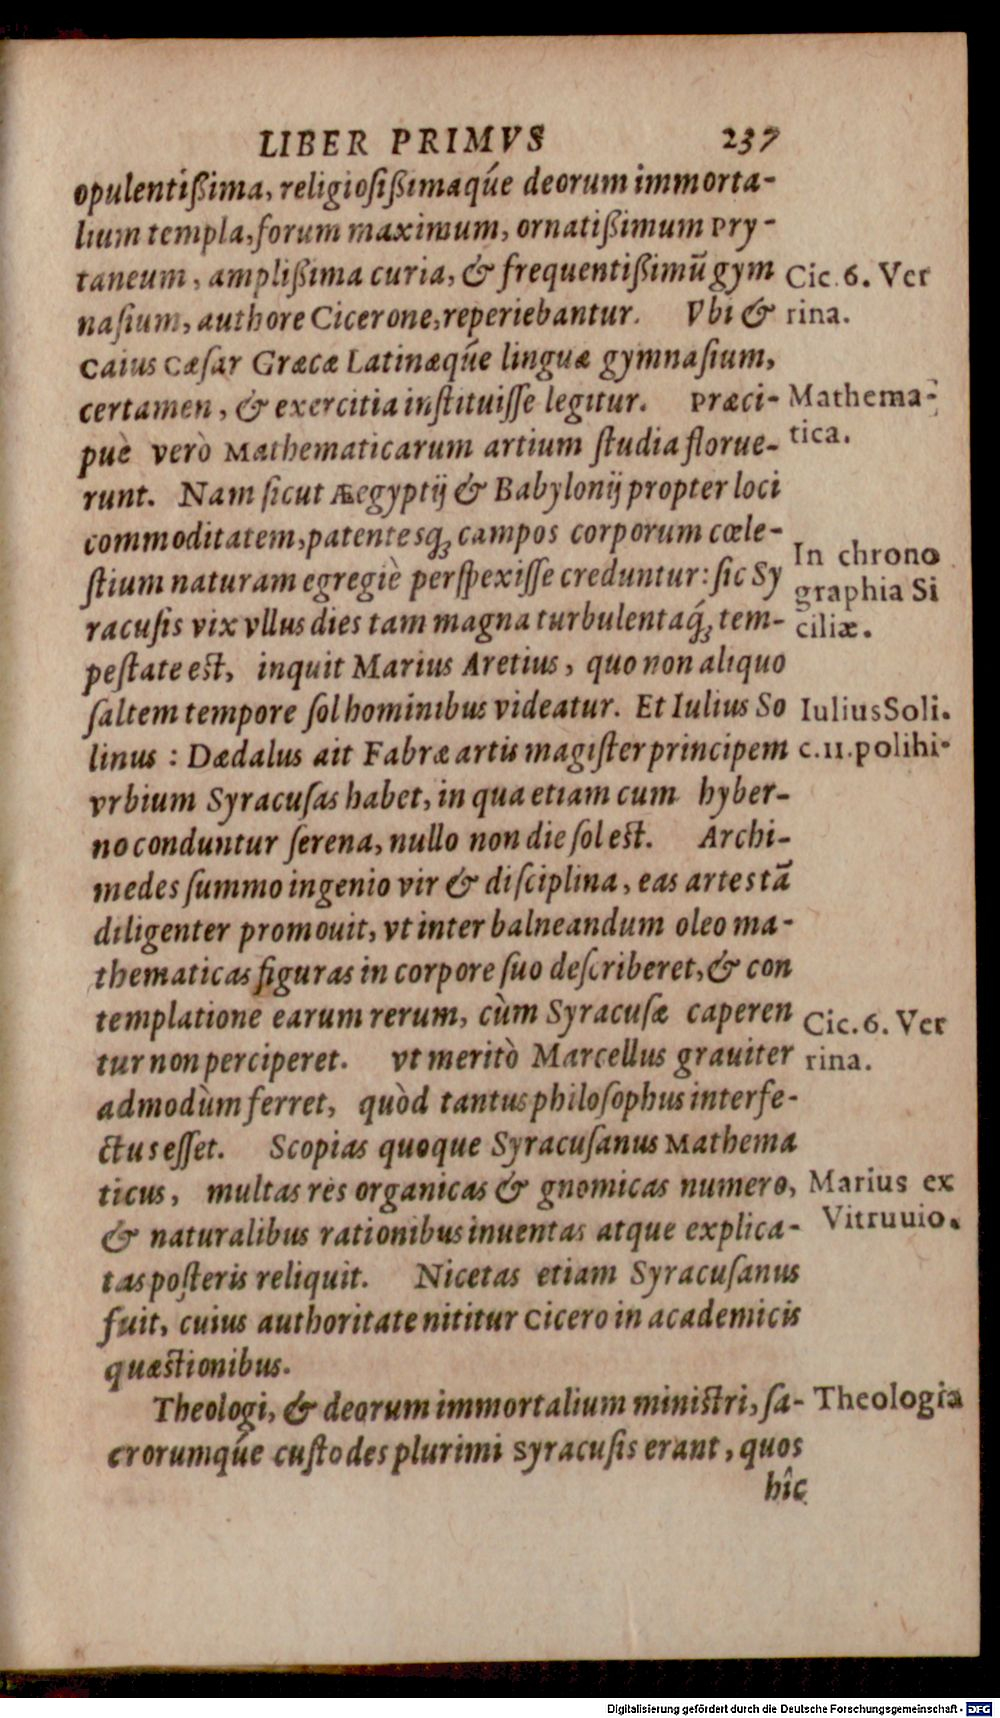 LIBER PRIMVS 237
opulentißima, religiosißimaq́ue deorum immorta-
lium templa, forum maximum, ornatißimum Pry-
taneum, amplißima curia, & frequentißimū gym
nasium, authore Cicerone, reperiebantur. Vbi &
Caius Cæsar Græcæ Latinæq́ue linguæ gymnasium,
certamen, & exercitia instituisse legitur. Præci-
puè verò Mathematicarum artium studia florue-
runt. Nam sicut Ægyptij & Babylonij propter loci
commoditatem, patentesq; campos corporum cœle-
stium naturam egregiè perspexisse creduntur: sic Sy
racusis vix vllus dies tam magna turbulentaq́; tem-
pestate est, inquit Marius Aretius, quo non aliquo
saltem tempore sol hominibus videatur. Et Iulius So
linus : Dædalus ait Fabræ artis magister principem
vrbium Syracusas habet, in qua etiam cum hyber-
no conduntur serena, nullo non die sol est. Archi-
medes summo ingenio vir & disciplina, eas artes tā
diligenter promouit, vt inter balneandum oleo ma-
thematicas figuras in corpore suo describeret, & con
templatione earum rerum, cùm Syracusæ caperen
tur non perciperet. vt meritò Marcellus grauiter
admodùm ferret, quòd tantus philosophus interfe-
ctus esset. Scopias quoque Syracusanus Mathema
ticus, multas res organicas & gnomicas numero,
& naturalibus rationibus inuentas atque explica-
tas posteris reliquit. Nicetas etiam Syracusanus
fuit, cuius authoritate nititur Cicero in academicis
quæstionibus.
Theologi, & deorum immortalium ministri, sa-
crorumq́ue custodes plurimi Syracusis erant, quos
hîc
Cic. 6. Ver
rina.
Mathema-
tica.
In chrono
graphia Si
ciliæ.
Iulius Soli.
c. 11. polihi.
Cic. 6. Ver
rina.
Marius ex
Vitruuio.
Theologia
Digitalisierung gefördert durch die Deutsche Forschungsgemeinschaft - DFG